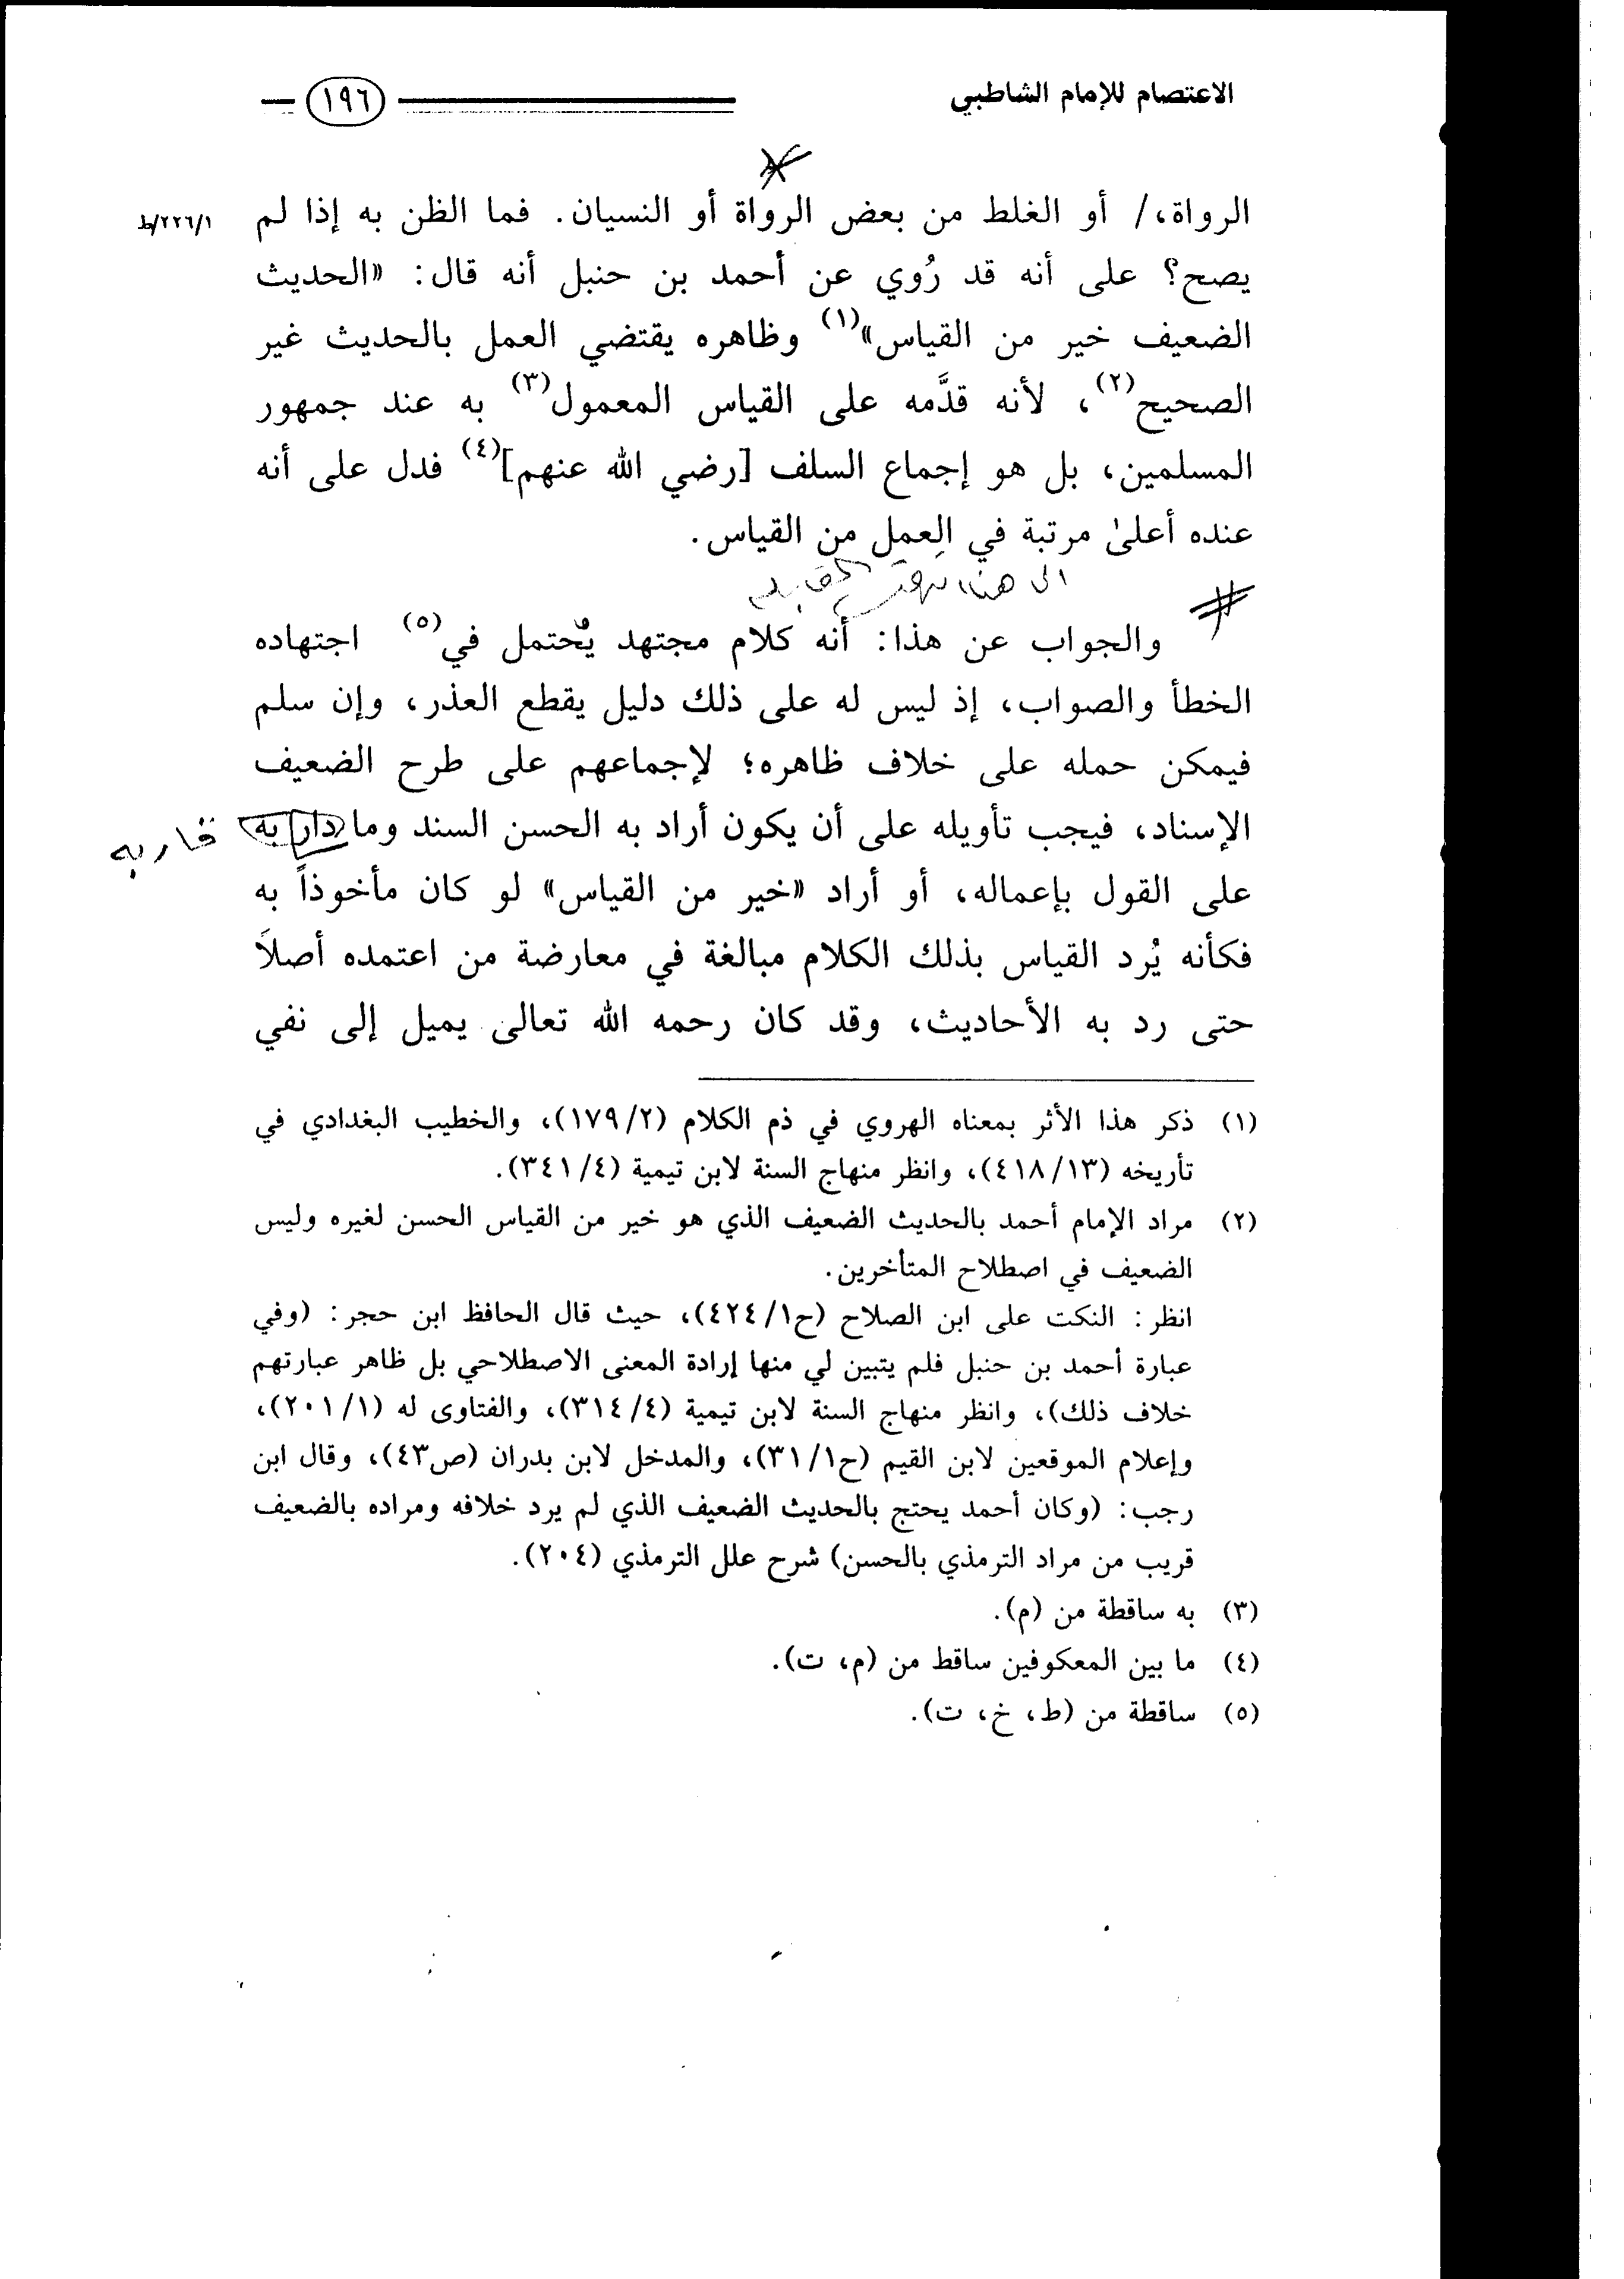 الاعتصام للإمام الشاطبي
١٩٦
الرواة،/ أو الغلط من بعض الرواة أو النسيان. فما الظن به إذا لم
٢٢٦/١/ط
يصح؟ على أنه قد رُوي عن أحمد بن حنبل أنه قال: «الحديث
الضعيف خير من القياس»(١) وظاهره يقتضي العمل بالحديث غير
الصحيح(٢)، لأنه قدَّمه على القياس المعمول(٣) به عند جمهور
المسلمين، بل هو إجماع السلف [رضي الله عنهم](٤) فدل على أنه
عنده أعلىٰ مرتبة في العمل من القياس.
الى هنا
والجواب عن هذا: أنه كلام مجتهد يُحتمل في(٥) اجتهاده
الخطأ والصواب، إذ ليس له على ذلك دليل يقطع العذر، وإن سلم
فيمكن حمله على خلاف ظاهره؛ لإجماعهم على طرح الضعيف
الإسناد، فيجب تأويله على أن يكون أراد به الحسن السند وما دار به
قاربه
على القول بإعماله، أو أراد «خير من القياس» لو كان مأخوذاً به
فكأنه يُرد القياس بذلك الكلام مبالغة في معارضة من اعتمده أصلاً
حتى رد به الأحاديث، وقد كان رحمه الله تعالى يميل إلى نفي
(١) ذكر هذا الأثر بمعناه الهروي في ذم الكلام (١٧٩/٢)، والخطيب البغدادي في
تأريخه (٤١٨/١٣)، وانظر منهاج السنة لابن تيمية (٣٤١/٤).
(٢) مراد الإمام أحمد بالحديث الضعيف الذي هو خير من القياس الحسن لغيره وليس
الضعيف في اصطلاح المتأخرين.
انظر: النكت على ابن الصلاح (ح٤٢٤/١)، حيث قال الحافظ ابن حجر: (وفي
عبارة أحمد بن حنبل فلم يتبين لي منها إرادة المعنى الاصطلاحي بل ظاهر عبارتهم
خلاف ذلك)، وانظر منهاج السنة لابن تيمية (٣١٤/٤)، والفتاوى له (٢٠١/١)،
وإعلام الموقعين لابن القيم (ح٣١/١)، والمدخل لابن بدران (ص٤٣)، وقال ابن
رجب: (وكان أحمد يحتج بالحديث الضعيف الذي لم يرد خلافه ومراده بالضعيف
قريب من مراد الترمذي بالحسن) شرح علل الترمذي (٢٠٤).
(٣) به ساقطة من (م).
(٤) ما بين المعكوفين ساقط من (م، ت).
(٥) ساقطة من (ط، خ، ت).